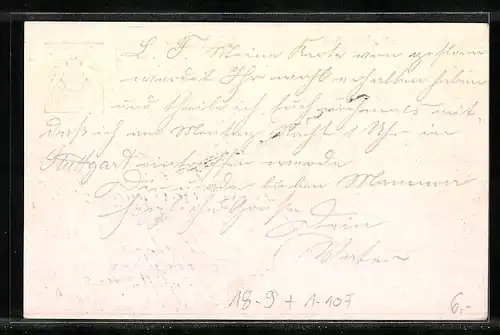 L. F. Meine Karte von gestern
werdet Ihr wohl erhalten haben
und theile ich Euch nochmals mit,
daß ich am Montag Nacht 1 Uhr in
Stuttgart eintreffen werde
Dir und der lieben Mamma
herzliche Grüße Dein
Vater
18-9 + 1-107
6.-